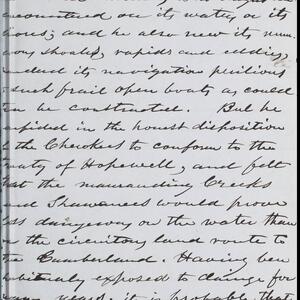 encountered on its waters or its
shores; and he also new its num
erous shoals, rapids and eddies,
its navigation perilous
such frail open boats as could
be constructed. But he
confided in the honest disposition
the Cherokees to conform to the
treaty of Hopewell, and felt
that the marauding Creeks
and Shawanees would prove
less dangerous on the water than
on the circuitous land route to
the Cumberland. Having been
habitually exposed to danger for
many years it is probable that